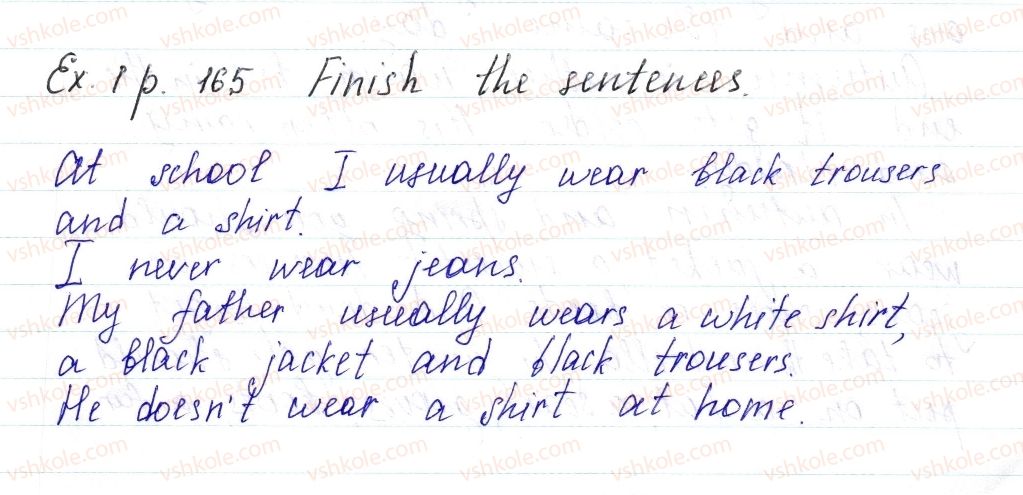 Ex. 1 p. 165 Finish the sentences.
At school I usually wear black trousers
and a shirt.
I never wear jeans.
My father usually wears a white shirt,
a black jacket and black trousers.
He doesn't wear a shirt at home.